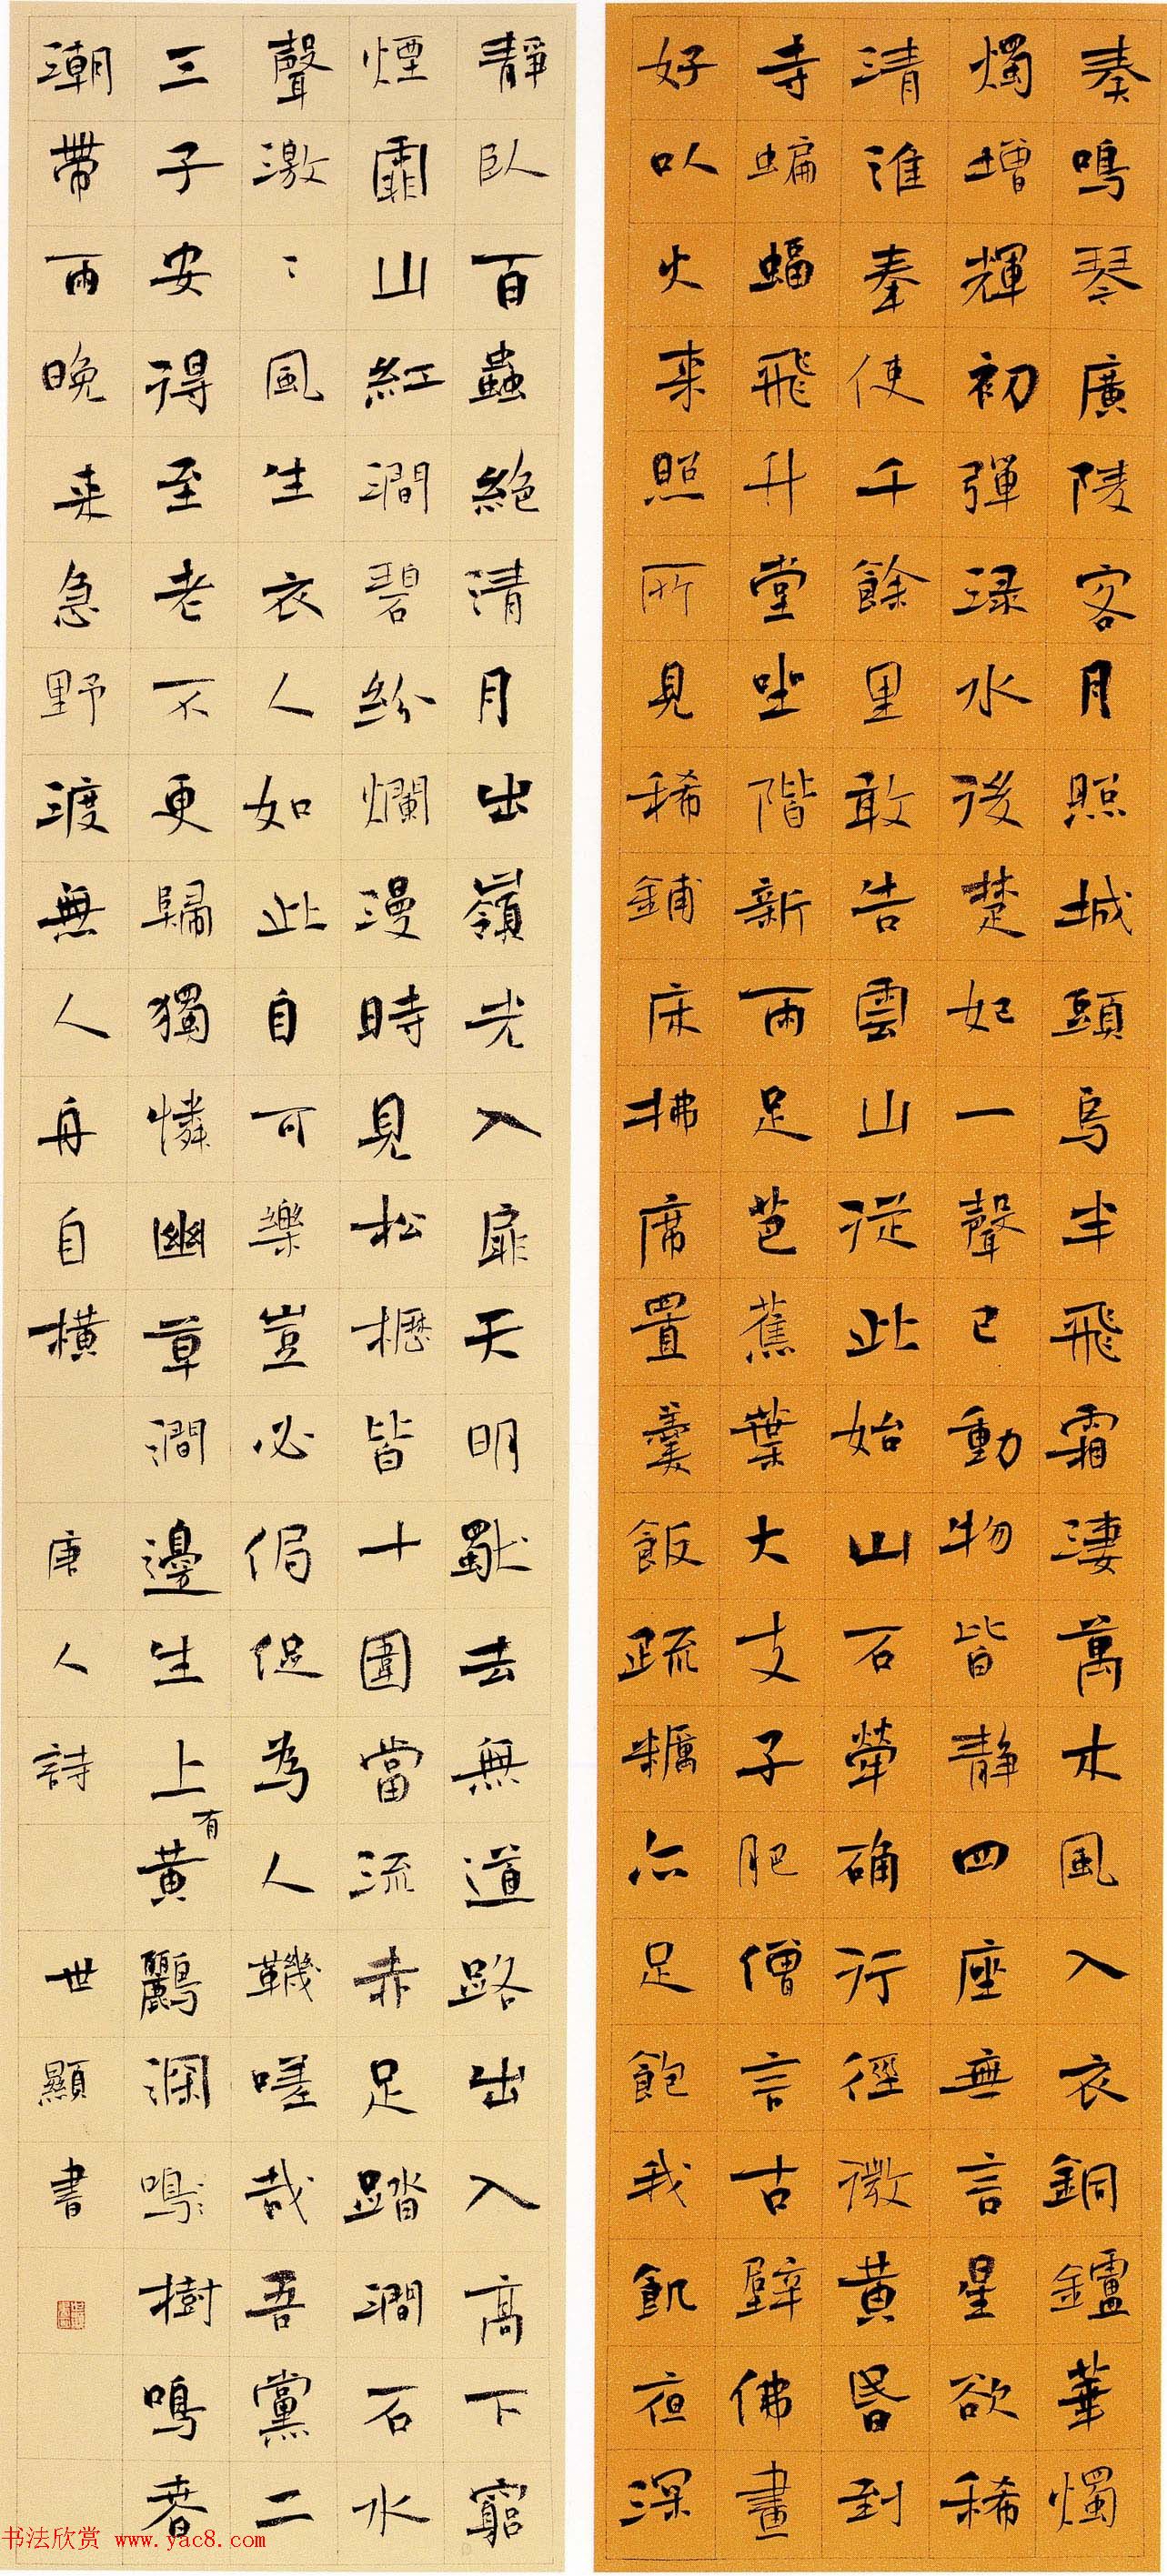 奏鳴琴廣陵客月照城頭烏半飛霜淒萬木風入衣銅鑪華燭
燭增輝初彈淥水後楚妃一聲已動物皆靜四座無言星欲稀
清淮奉使千餘里敢告雲山從此始山石犖确行徑微黃昏到
寺蝙蝠飛升堂坐階新雨足芭蕉葉大支子肥僧言古壁佛畫
好以火來照所見稀鋪床拂席置羹飯疏糲亦足飽我飢夜深
靜臥百蟲絕清月出嶺光入扉天明獨去無道路出入高下窮
煙霏山紅澗碧紛爛漫時見松櫪皆十圍當流赤足踏澗石水
聲激〻風生衣人如此自可樂豈必侷促為人鞿嗟哉吾黨二
三子安得至老不更歸獨憐幽草澗邊生上有黃鸝深鳴樹鳴春
潮帶雨晚來急野渡無人舟自橫 唐人詩 世顯書
书法欣赏 www.yac8.com